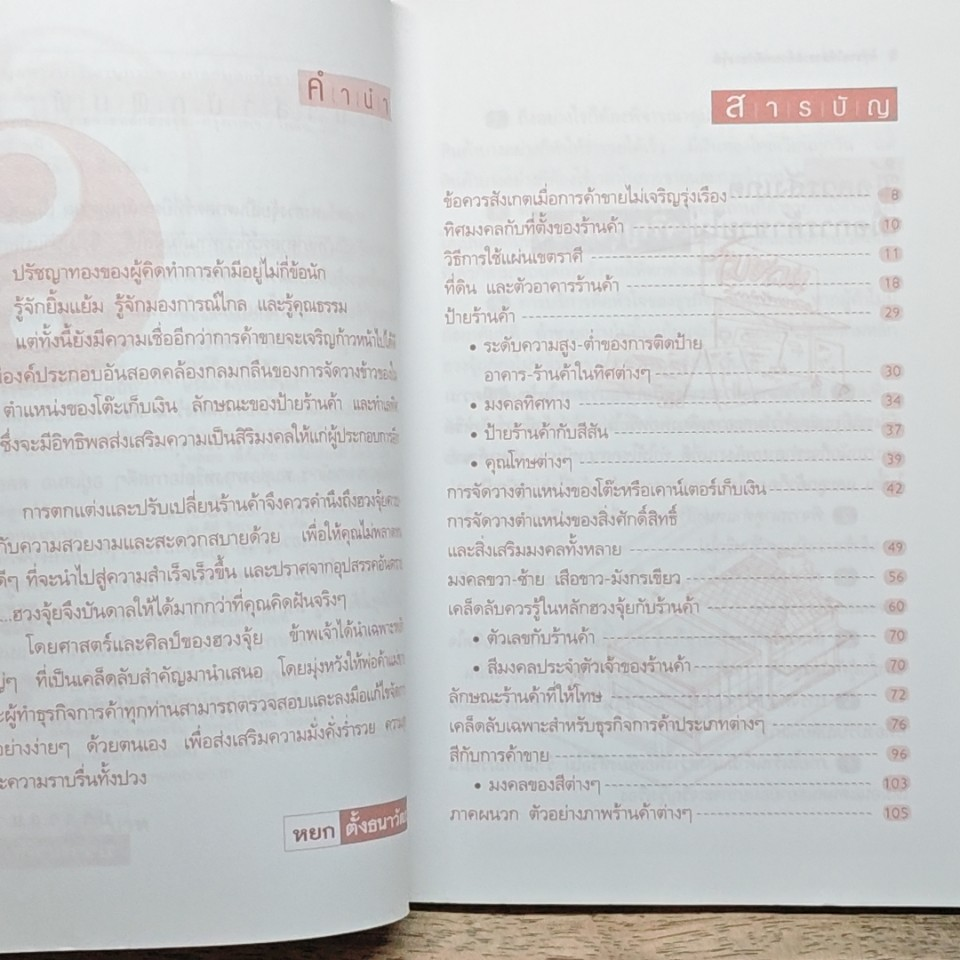 คำนำ
ปรัชญาทองของผู้คิดทำการค้ามีอยู่ไม่กี่ข้อนัก
รู้จักยิ้มแย้ม รู้จักมองการณ์ไกล และรู้คุณธรรม
แต่ทั้งนี้ยังมีความเชื่ออีกว่าการค้าขายจะเจริญก้าวหน้าไปได้
องค์ประกอบอันสอดคล้องกลมกลืนของการจัดวางข้าวของใน
ตำแหน่งของโต๊ะเก็บเงิน ลักษณะของป้ายร้านค้า
ซึ่งจะมีอิทธิพลส่งเสริมความเป็นสิริมงคลให้แก่ผู้ประกอบการ
การตกแต่งและปรับเปลี่ยนร้านค้าจึงควรคำนึงถึงฮวงจุ้ย
กับความสวยงามและสะดวกสบายด้วย เพื่อให้คุณไม่พลาด
ดีๆ ที่จะนำไปสู่ความสำเร็จเร็วขึ้น และปราศจากอุปสรรค
...ฮวงจุ้ยจึงบันดาลให้ได้มากกว่าที่คุณคิดฝันจริงๆ
โดยศาสตร์และศิลป์ของฮวงจุ้ย ข้าพเจ้าได้นำเฉพาะ
ที่เป็นเคล็ดลับสำคัญมานำเสนอ โดยมุ่งหวังให้พ่อค้า
ผู้ทำธุรกิจการค้าทุกท่านสามารถตรวจสอบและลงมือแก้ไข
อย่างง่ายๆ ด้วยตนเอง เพื่อส่งเสริมความมั่งคั่งร่ำรวย
ความราบรื่นทั้งปวง
หยก ตั้งธนาวัฒ
สารบัญ
ข้อควรสังเกตเมื่อการค้าขายไม่เจริญรุ่งเรือง 8
ทิศมงคลกับที่ตั้งของร้านค้า 10
วิธีการใช้แผ่นเขตราศี 11
ที่ดิน และตัวอาคารร้านค้า 18
ป้ายร้านค้า 29
• ระดับความสูง-ต่ำของการติดป้าย
อาคาร-ร้านค้าในทิศต่างๆ 30
• มงคลทิศทาง 34
• ป้ายร้านค้ากับสีสัน 37
• คุณโทษต่างๆ 39
การจัดวางตำแหน่งของโต๊ะหรือเคาน์เตอร์เก็บเงิน 42
การจัดวางตำแหน่งของสิ่งศักดิ์สิทธิ์
และสิ่งเสริมมงคลทั้งหลาย 49
มงคลขวา-ซ้าย เสือขาว-มังกรเขียว 56
เคล็ดลับควรรู้ในหลักฮวงจุ้ยกับร้านค้า 60
• ตัวเลขกับร้านค้า 70
• สีมงคลประจำตัวเจ้าของร้านค้า 70
ลักษณะร้านค้าที่ให้โทษ 72
เคล็ดลับเฉพาะสำหรับธุรกิจการค้าประเภทต่างๆ 76
สีกับการค้าขาย 96
• มงคลของสีต่างๆ 103
ภาคผนวก ตัวอย่างภาพร้านค้าต่างๆ 105